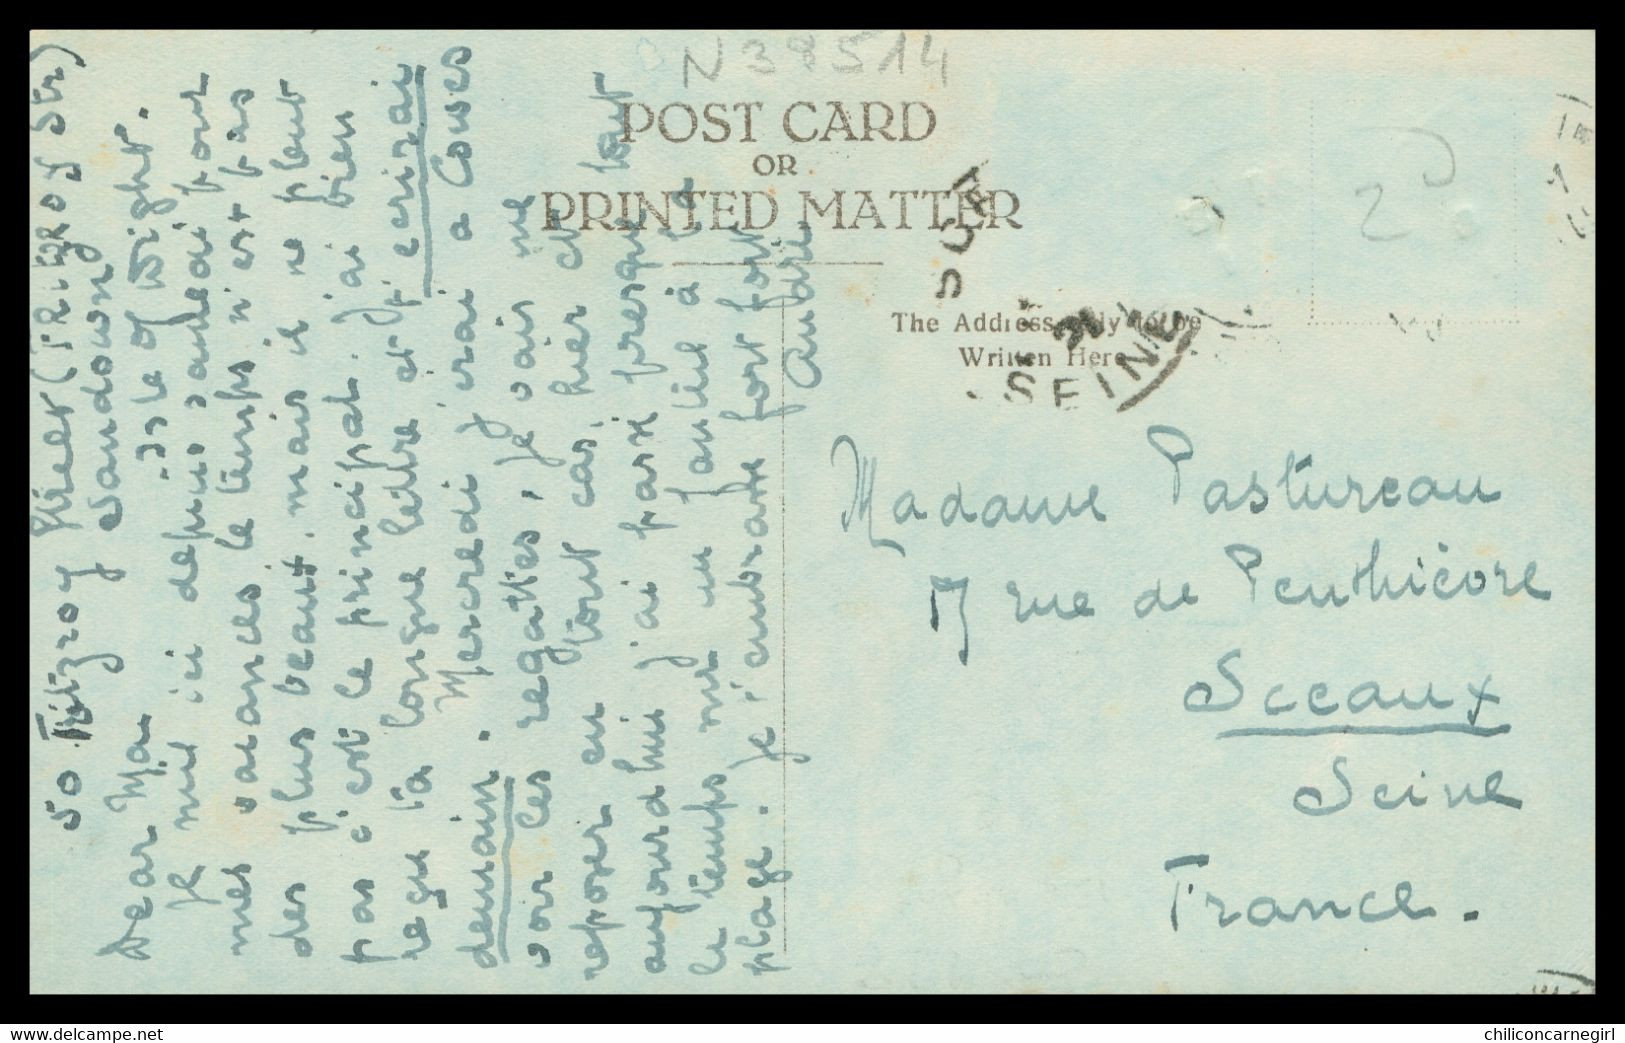 N 38514
POST CARD
OR
PRINTED MATTER
The Address Only to be
Written Here
SCEAUX
SEINE
20
Madame Pastureau
17 rue de Penthièvre
Sceaux
Seine
France.
50 Fitzroy Street (FRitzROY Str)
Sandown
Isle of Wight.
Dear Ma
Je suis ici depuis samedi pour
mes vacances le temps n'est pas
des plus beaux, mais il ne pleut
pas c'est le principal. J'ai bien
reçu ta longue lettre et t'ecrirai
demain. Mercredi j'irai a Cowes
voir les regattes, je vais me
reposer en tout cas, hier et
aujourd'hui j'ai passé presque tout
le temps sur un fauteuil à la
plage. Je t'embrasse fort fort
André
chiliconcarnegirl
www.delcampe.net